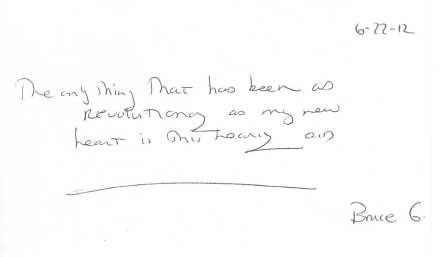 6-22-12
The only thing that has been as
REVOLUTIONARY as my new
heart is this hearing aid
Bruce G.